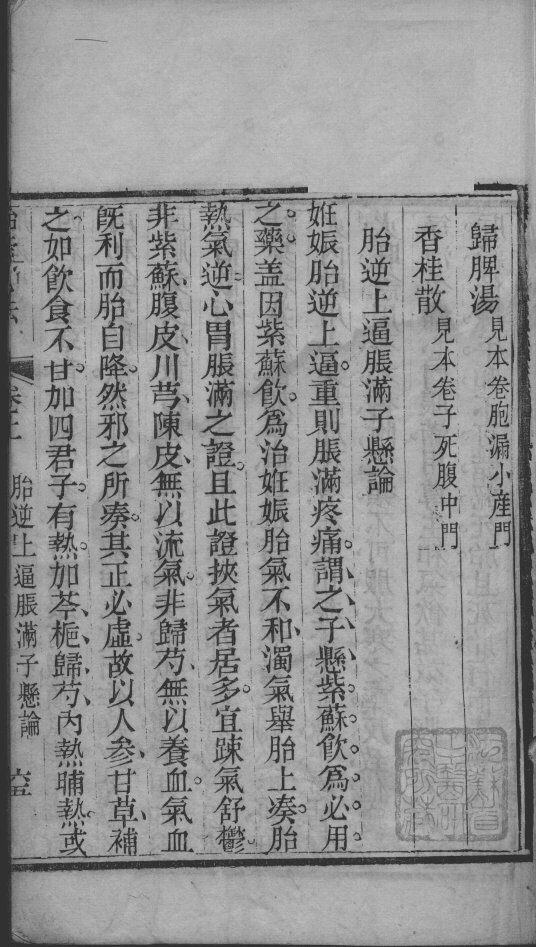 歸脾湯見本卷胞漏小產門
香桂散見本卷子死腹中門
胎逆上逼脹滿子懸論
姙娠胎逆上逼。重則脹滿疼痛。謂之子懸。紫蘇飲為必用
之藥。盖因紫蘇飲。為治姙娠胎氣不和。濁氣舉胎上凑。胎
熱氣逆。心胃脹滿之證。且此證挾氣者居多。宜踈氣舒鬱。
非紫蘇、腹皮、川芎、陳皮、無以流氣。非歸芍、無以養血。氣血
旣利而胎自降。然邪之所凑。其正必虛。故以人參、甘草、補
之。如飲食不甘。加四君子。有熱。加芩、梔、歸、芍。內熱晡熱。或
卷上 胎逆上逼脹滿子懸論 六五